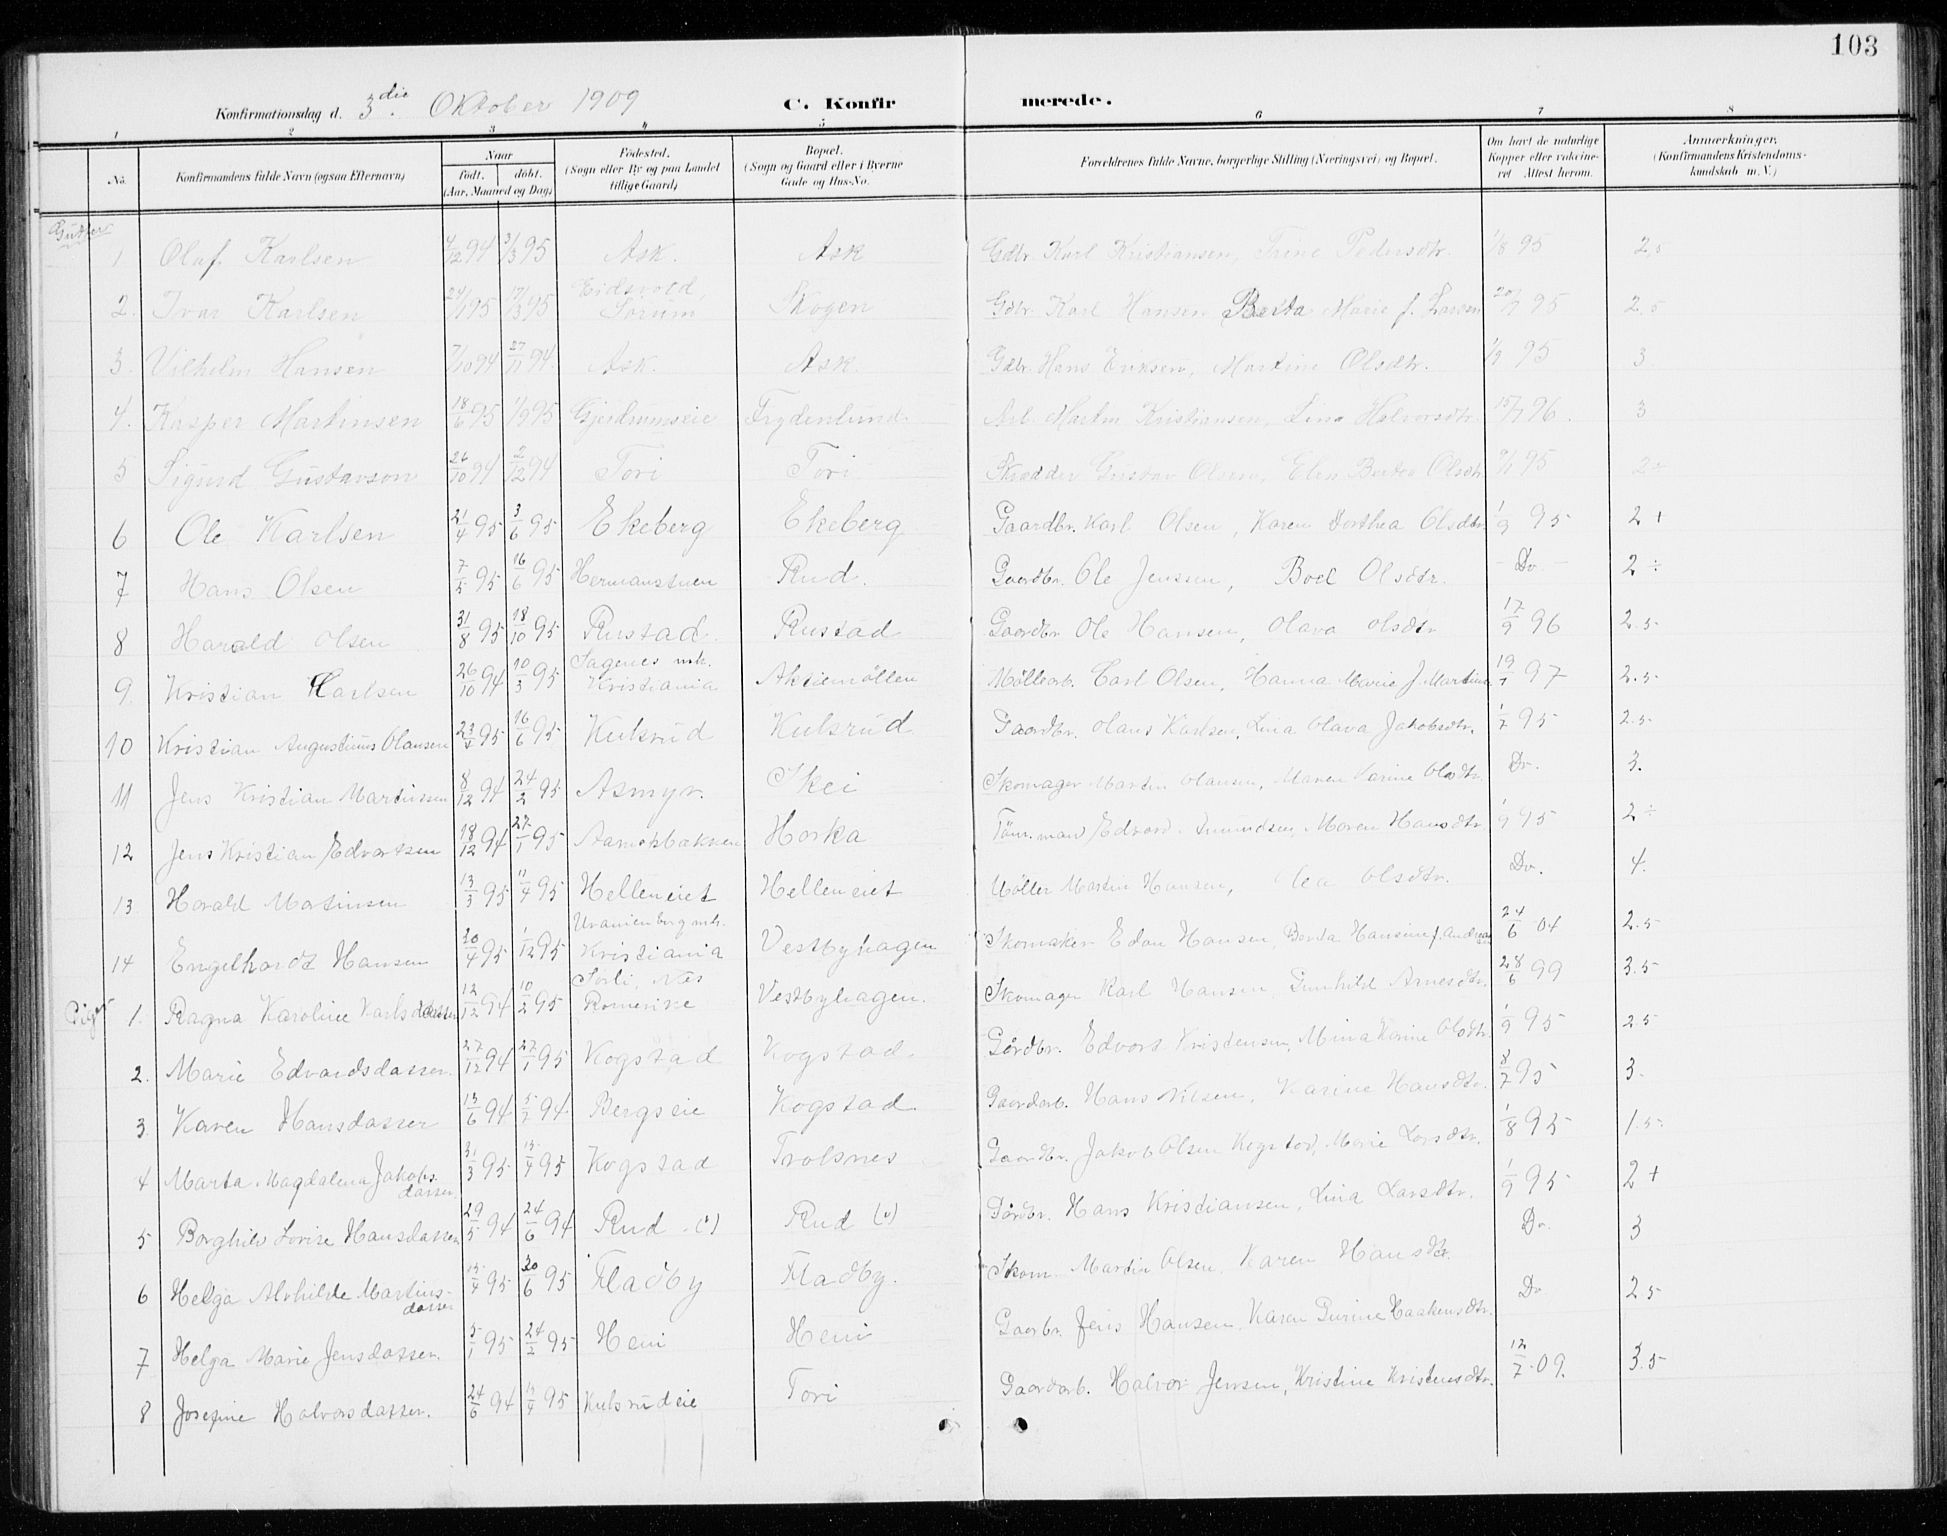 103
Konfirmationsdag d. 3die Oktober 1909 C. Konfir merede.
1 2 3 4 5 6 7 8
No. Konfirmandens fulde Navn (ogsaa Efternavn) Naar født. døbt. (Aar, Maaned og Dag) Fødested. (Sogn eller By og paa Landet tillige Gaard) Bopæl. (Sogn og Gaard eller i Byerne Gade og Hus-No. Forældrenes fulde Navne, borgerlige Stilling (Næringsvei) og Bopæl. Om havt de naturlige Kopper eller vakcineret Attest herom. Anmærkninger. (Konfirmandens Kristendomskundskab m. V.)
Gutter
1 Olaf Karlsen 4/12 94 3/3 95 Ask. Ask Gdbr. Karl Kristiansen, Trine Pedersdtr. 1/8 95 2,5
2. Ivar Karlsen 24/1 95 17/3 95 Eidsvold Sørum Skogen Gdbr. Karl Hansen Berta Marie f. Larsen 20/7 95 2.5
3. Vilhelm Hansen 7/10 94 27/11 94. Ask. Ask. Gdbr. Hans Eriksen, Martine Olsdtr. 1/9 95 3
4. Kasper Martinsen 18/6 95 1/9 95 Gjerdrumseie Frydenlund. Arb. Martin Kristiansen, Lina Halvorsdtr. 15/7 96. 3
5 Sigurd Gustavson 26/10 94 2/12 94 Tori Tori. Skrædder Gustav Olsen, Elen Berta Olsdtr 95 2÷
6 Ole Karlsen 21/4 95 3/6 95 Ekeberg Ekeberg Gaardbr. Karl Olsen, Karen Dorthea Olsdtr 1/9 95 2+
7 Hans Olsen 7/5 95 16/6 95 Hermanstuen Rud. Gaardbr. Ole Jenssen, Boel Olsdtr. - Do - 2÷
8 Harald Olsen 31/8 95 18/10 95 Rustad. Rustad Gaardbr Ole Hansen, Olava Olsdtr 17/9 96 2.5
9. Kristian Karlsen 26/10 94 10/3 95 Sagenes mh. Kristiania Aktiemøllen Møllearb. Carl Olsen, Hanna Marie f. Martins. 97 2.5
10 Kristian Augustinus Olausen 23/4 95 16/6 95 Kulsrud Kulsrud Gaardbr. Olaus Karlsen, Lina Olava Jakobsdtr. 1/7 95 2.5
11 Jens Kristian Martinsen 8/12 94 24/2 95 Asmyr. Skei Skomager Martin Olausen, Maren Karine Olsdtr. Do. 3.
12 Jens Kristian Edvartsen 18/12 94 27/1 95 Horka Tøm.mand Edvard Amundsen, Maren Hansdtr 1/9 95 2÷
13 Harald Martinsen 13/3 95 11/4 95 Helleneiet Helleneiet Møller Martin Hansen, Olsdtr. Do. 4.
14 Engelhardt Hansen 20/4 95 1/12 95 Uranienborg mh. Kristiania Vestbyhagen Skomaker Edon Hansen, Berta Hansine f. 24/6 04 2.5
Piger
1. Ragna Karoline Karlsdatter 12/12 94 10/2 95 Sørli, Nes Romerike Vestbyhagen. Skomager Karl Hansen, Gunhild Arnesdtr. 28/6 99 3.5
2. Marie Edvardsdatter. 27/12 94 27/1 95 Kogstad Kogstad. Gårdbr. Edvart Kristensen, Mina Karine Olsdtr. 1/9 95 2.5
3. Karen Hansdatter 13/6 94 5/7 94. Bergseie Kogstad. Gaardarb. Hans Nilsen, Karine Hansdtr. 8/7 95 3.
4 Marta Magdalena Jakobs- datter. 31/3 95 15/4 95 Kogstad Trolsnes Gaardbr. Jakob Olsen Kogstad, Marie Larsdtr. 1/8 95 1.5.
5 Borghild Lovise Hansdatter. 29/5 94 24/6 94 Rud. (v) Rud (v) Gårdbr. Hans Kristiansen, Lina Larsdtr. 1/9 95 2+
6 Helga Alvhilde Martins- datter 15/4 95 30/6 95 Fladby Fladby. Skom. Martin Olsen, Karen Hansdtr. Do. 3
7 Helga Marie Jensdatter. 5/1 95 24/2 95 Heni Heni Gaarbr. Jens Hansen, Karen Gurine Haakensdtr. Do 2.5
8 Josefine Halvorsdatter. 24/6 94 95 Kulsrudeie Tori Gaardarb. Halvor Jensen, Kristine Kristensdtr. 12/7 09. 3.5